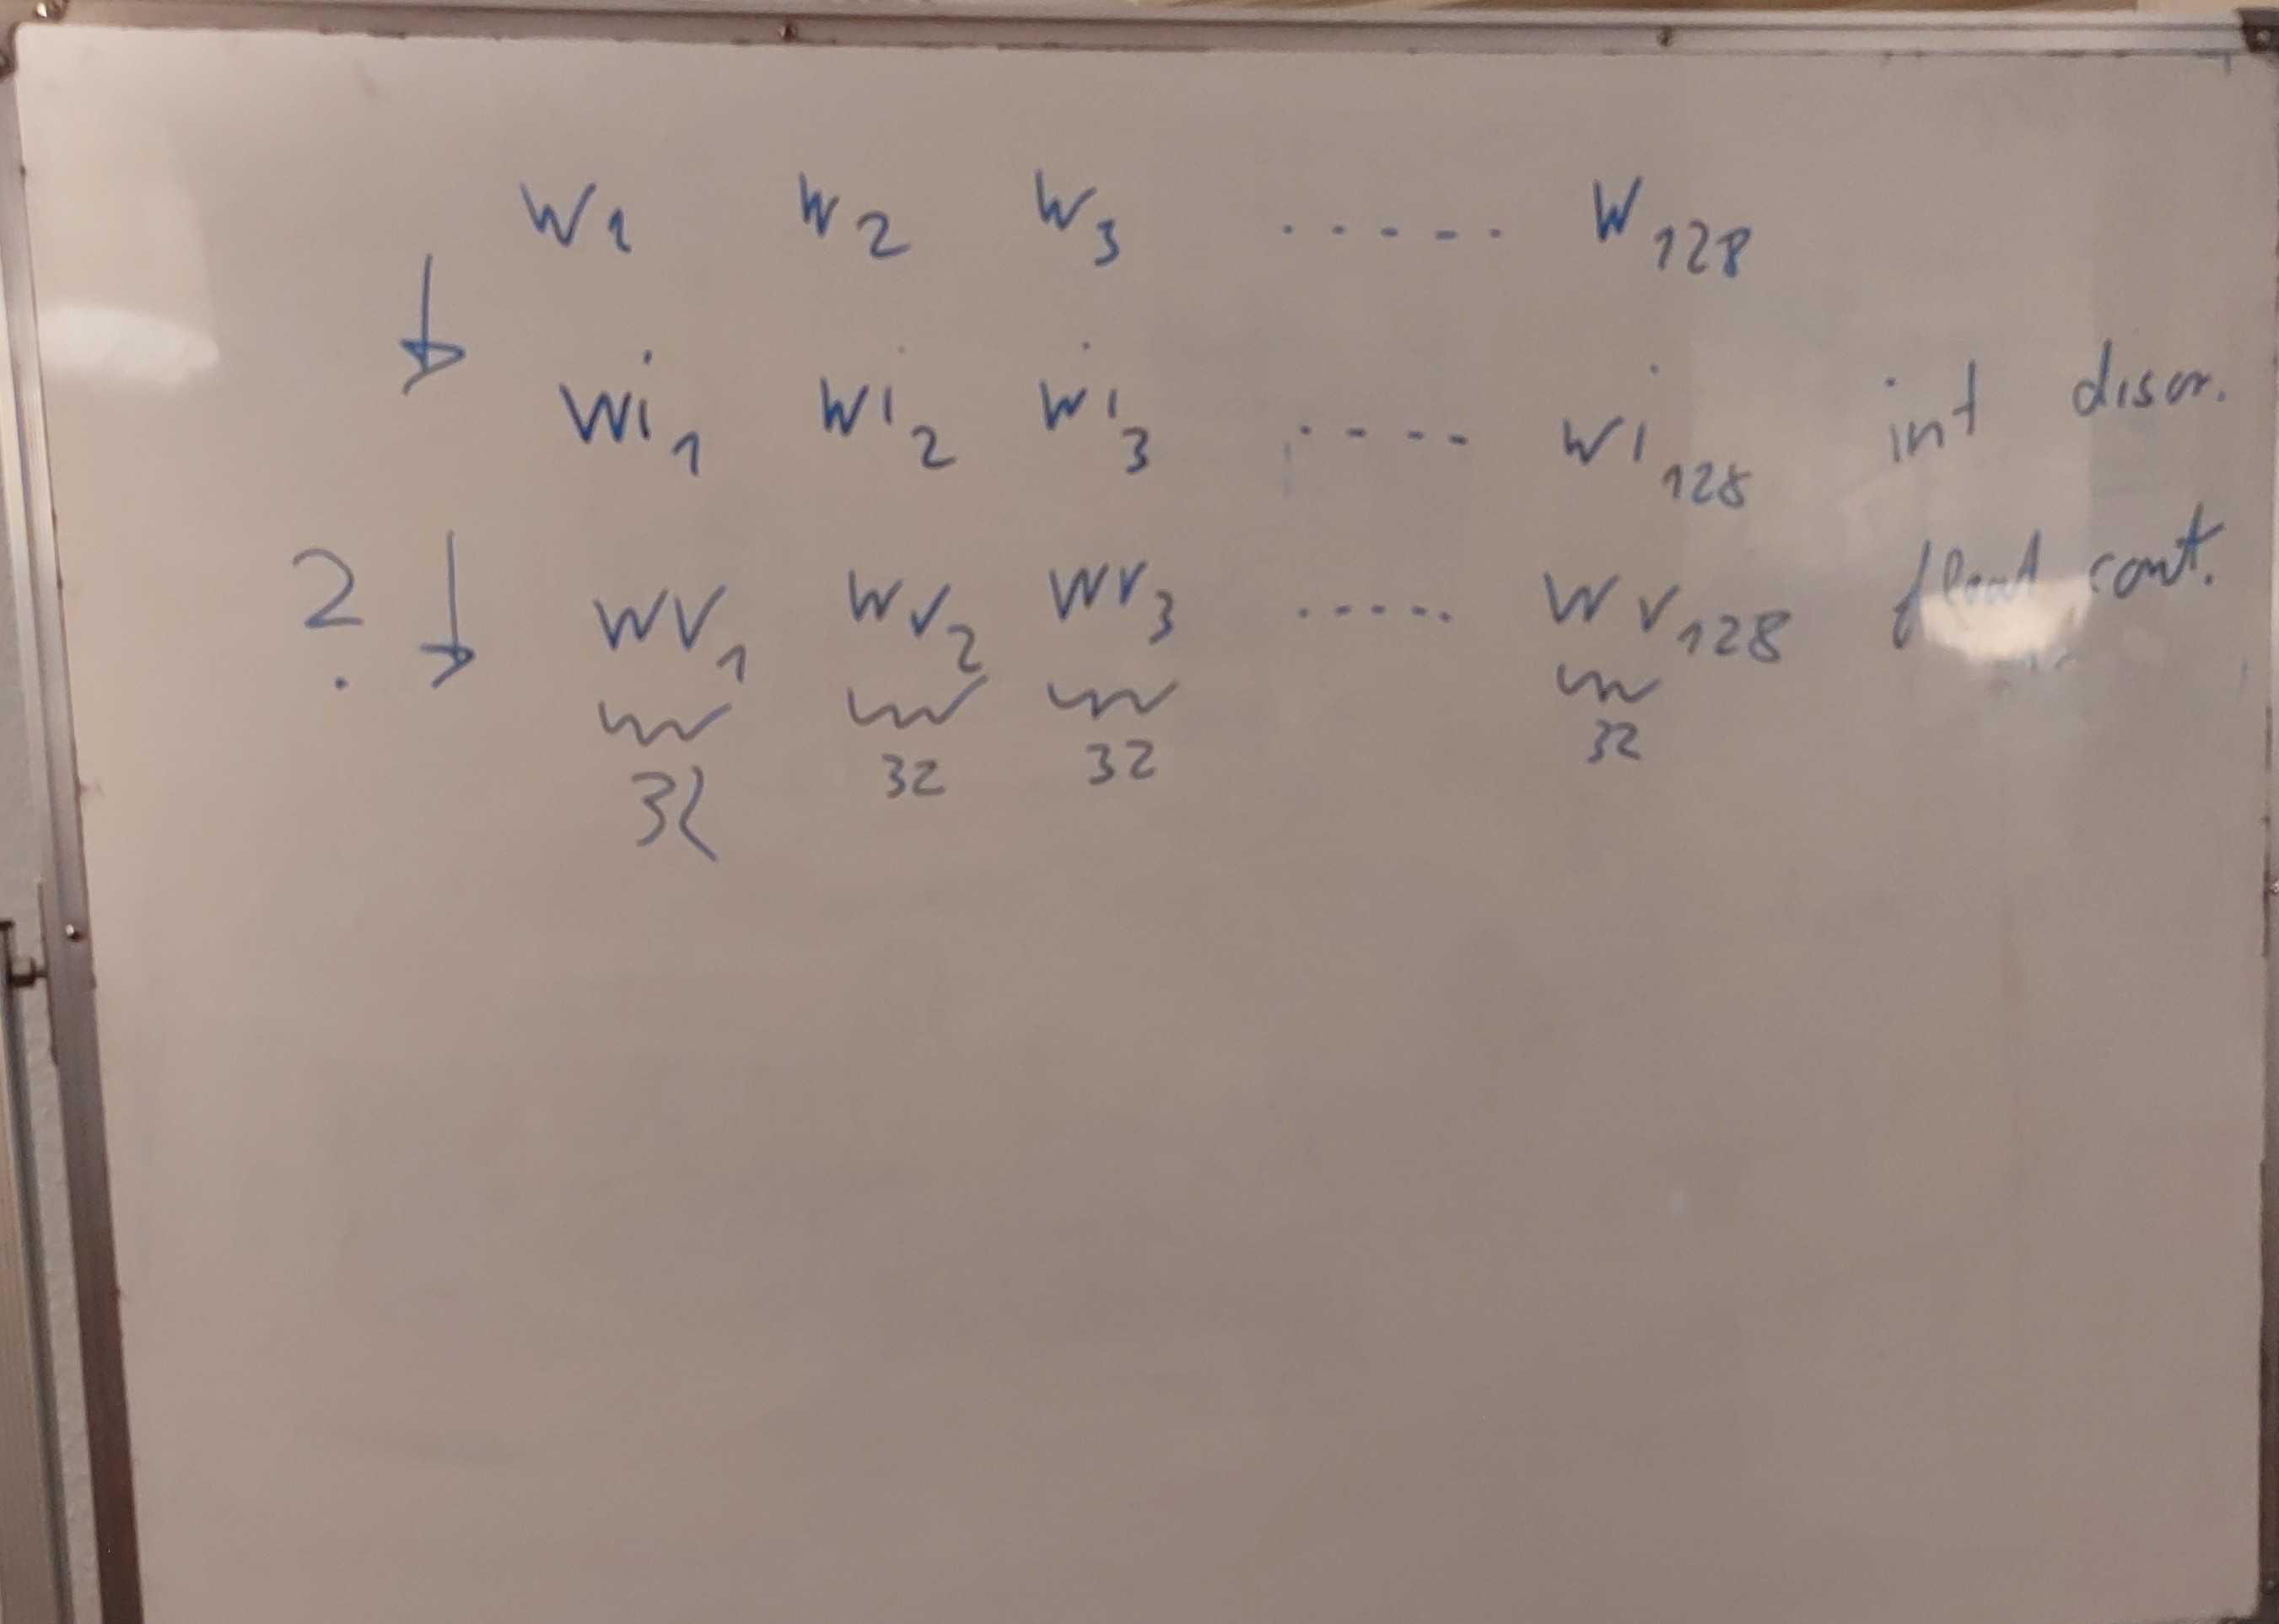 w1 w2 w3 ..... w128
wi1 wi2 wi3 .... wi128 int discr.
? wv1 wv2 wv3 ..... wv128 float cont.
32 32 32 32